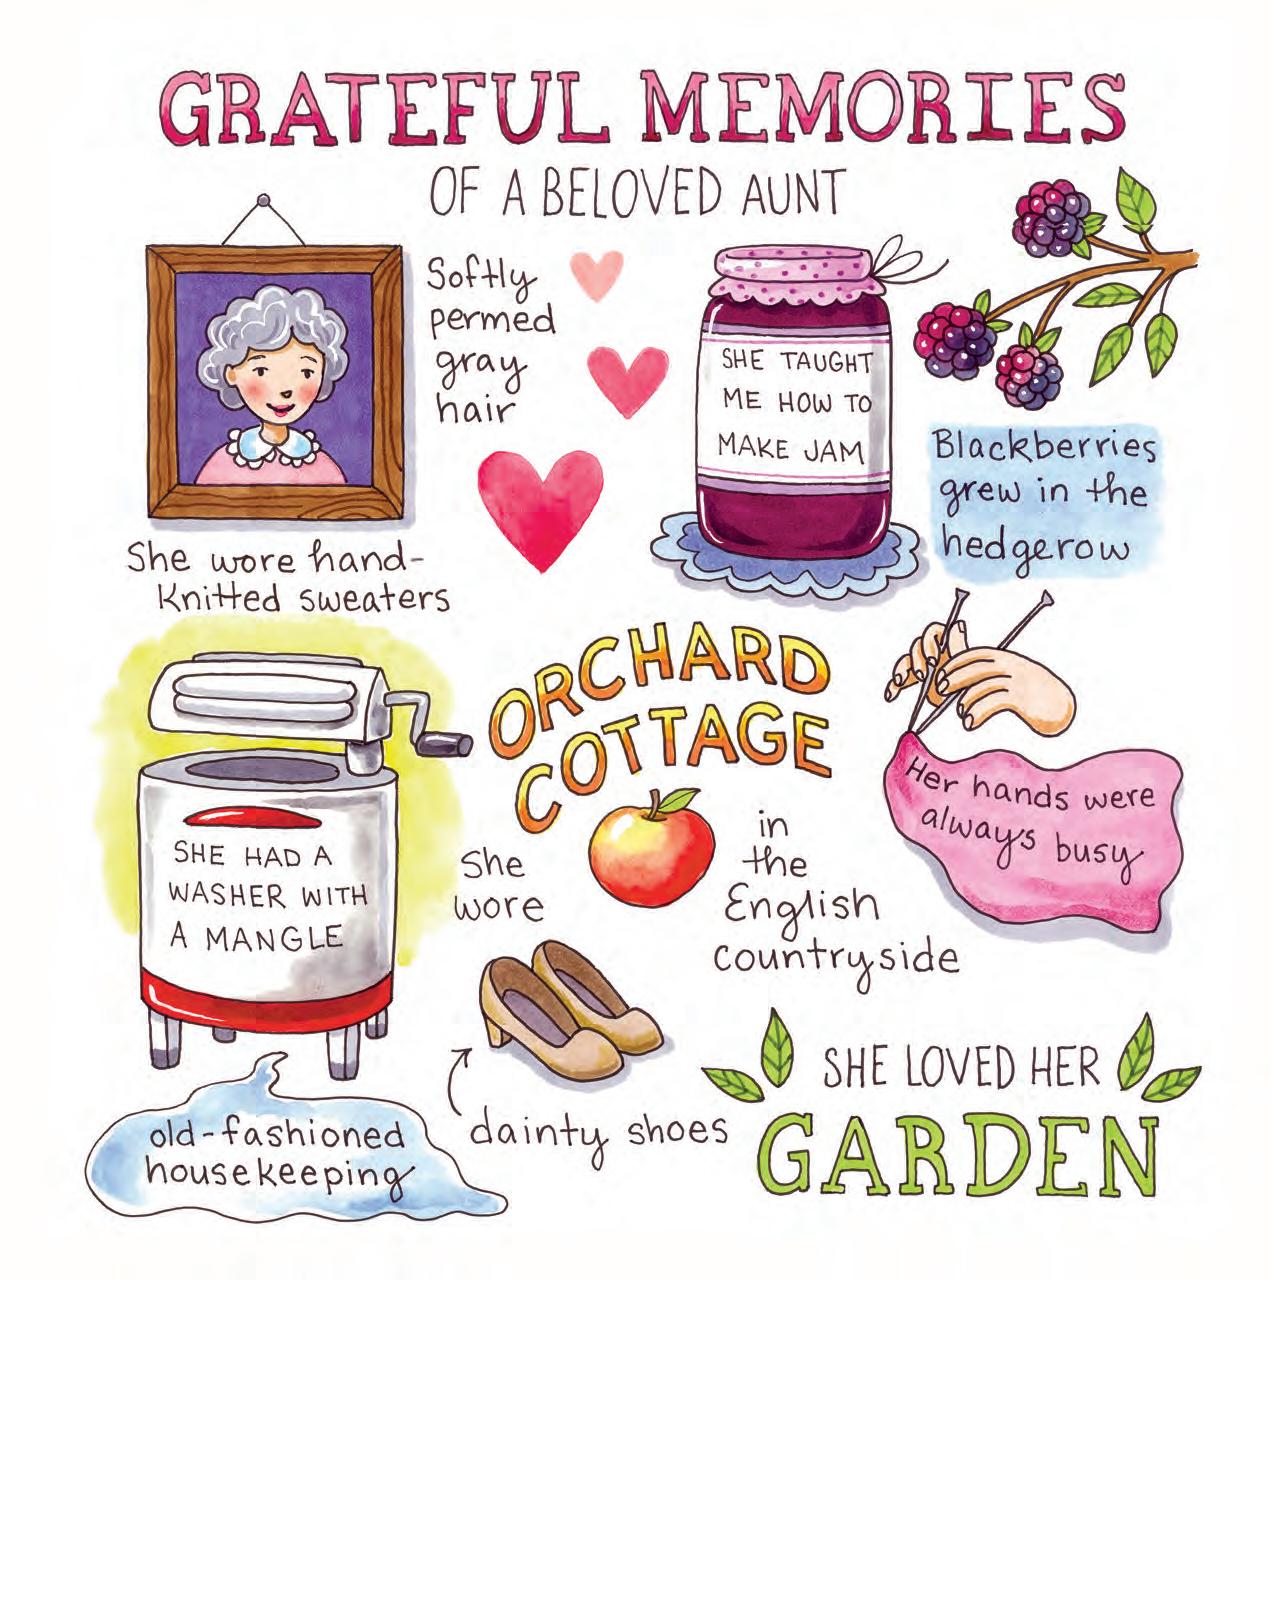 GRATEFUL MEMORIES
OF A BELOVED AUNT
Softly
permed
gray
hair
SHE TAUGHT
ME HOW TO
MAKE JAM
Blackberries
grew in the
hedgerow
She wore hand-
Knitted sweaters
ORCHARD
COTTAGE
in
the
English
countryside
Her hands were
always busy
SHE HAD A
WASHER WITH
A MANGLE
old-fashioned
housekeeping
She
wore
dainty shoes
SHE LOVED HER
GARDEN